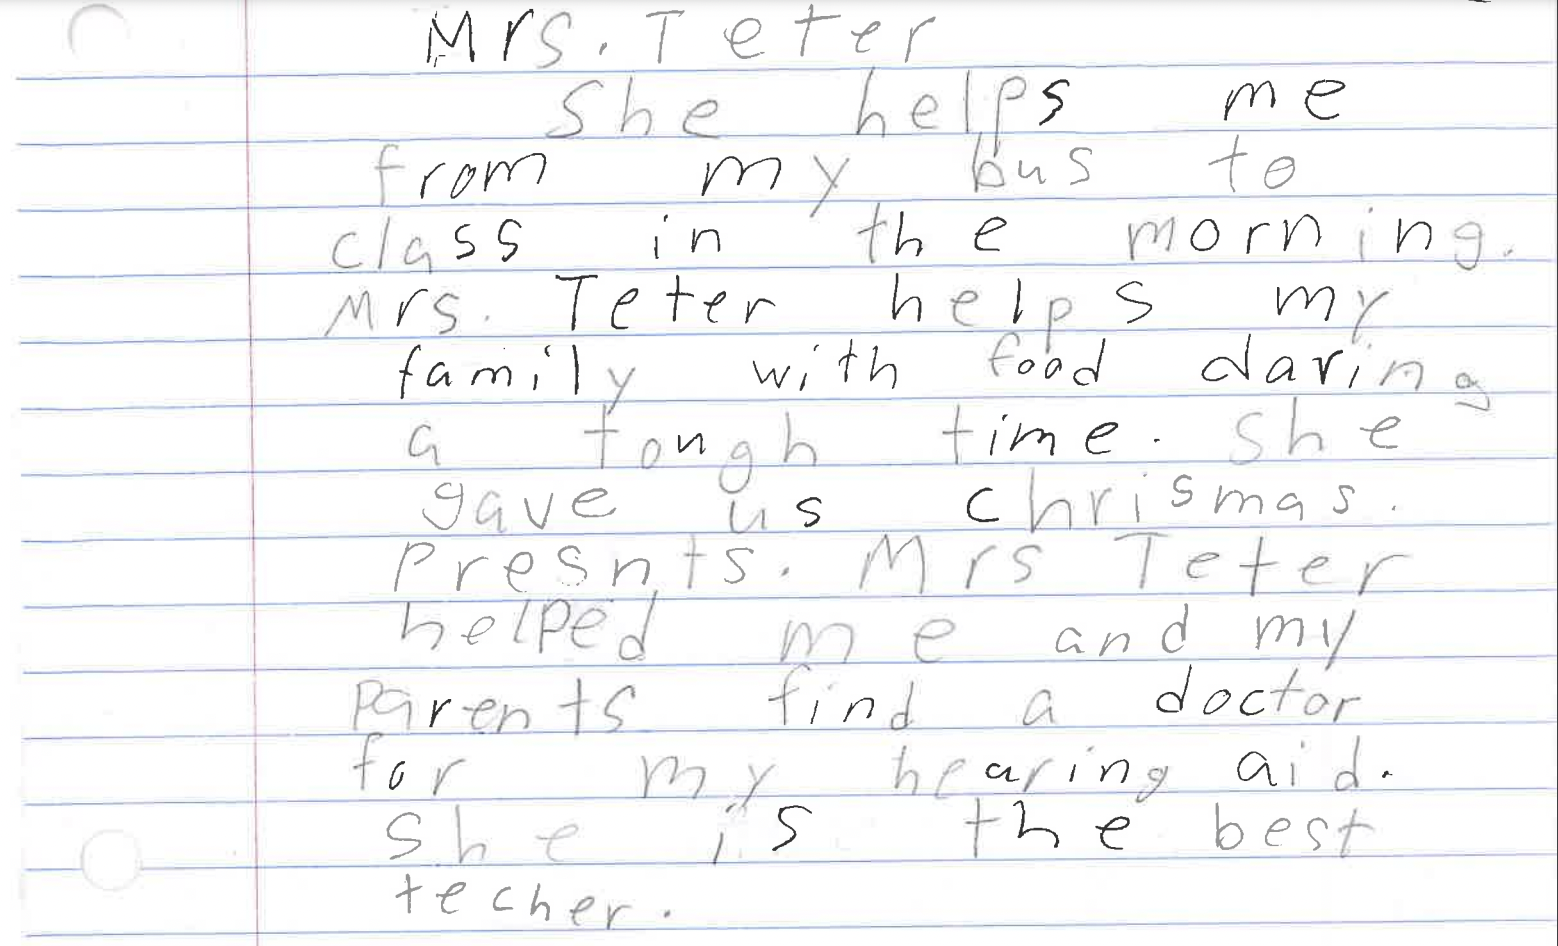 Mrs. Teter
She helps me
from my bus to
class in the morning.
Mrs. Teter helps my
family with food daring
a tough time. She
gave us chrismas.
Presnts. Mrs Teter
helped me and my
parents find a doctor
for my hearing aid.
She is the best
techer.